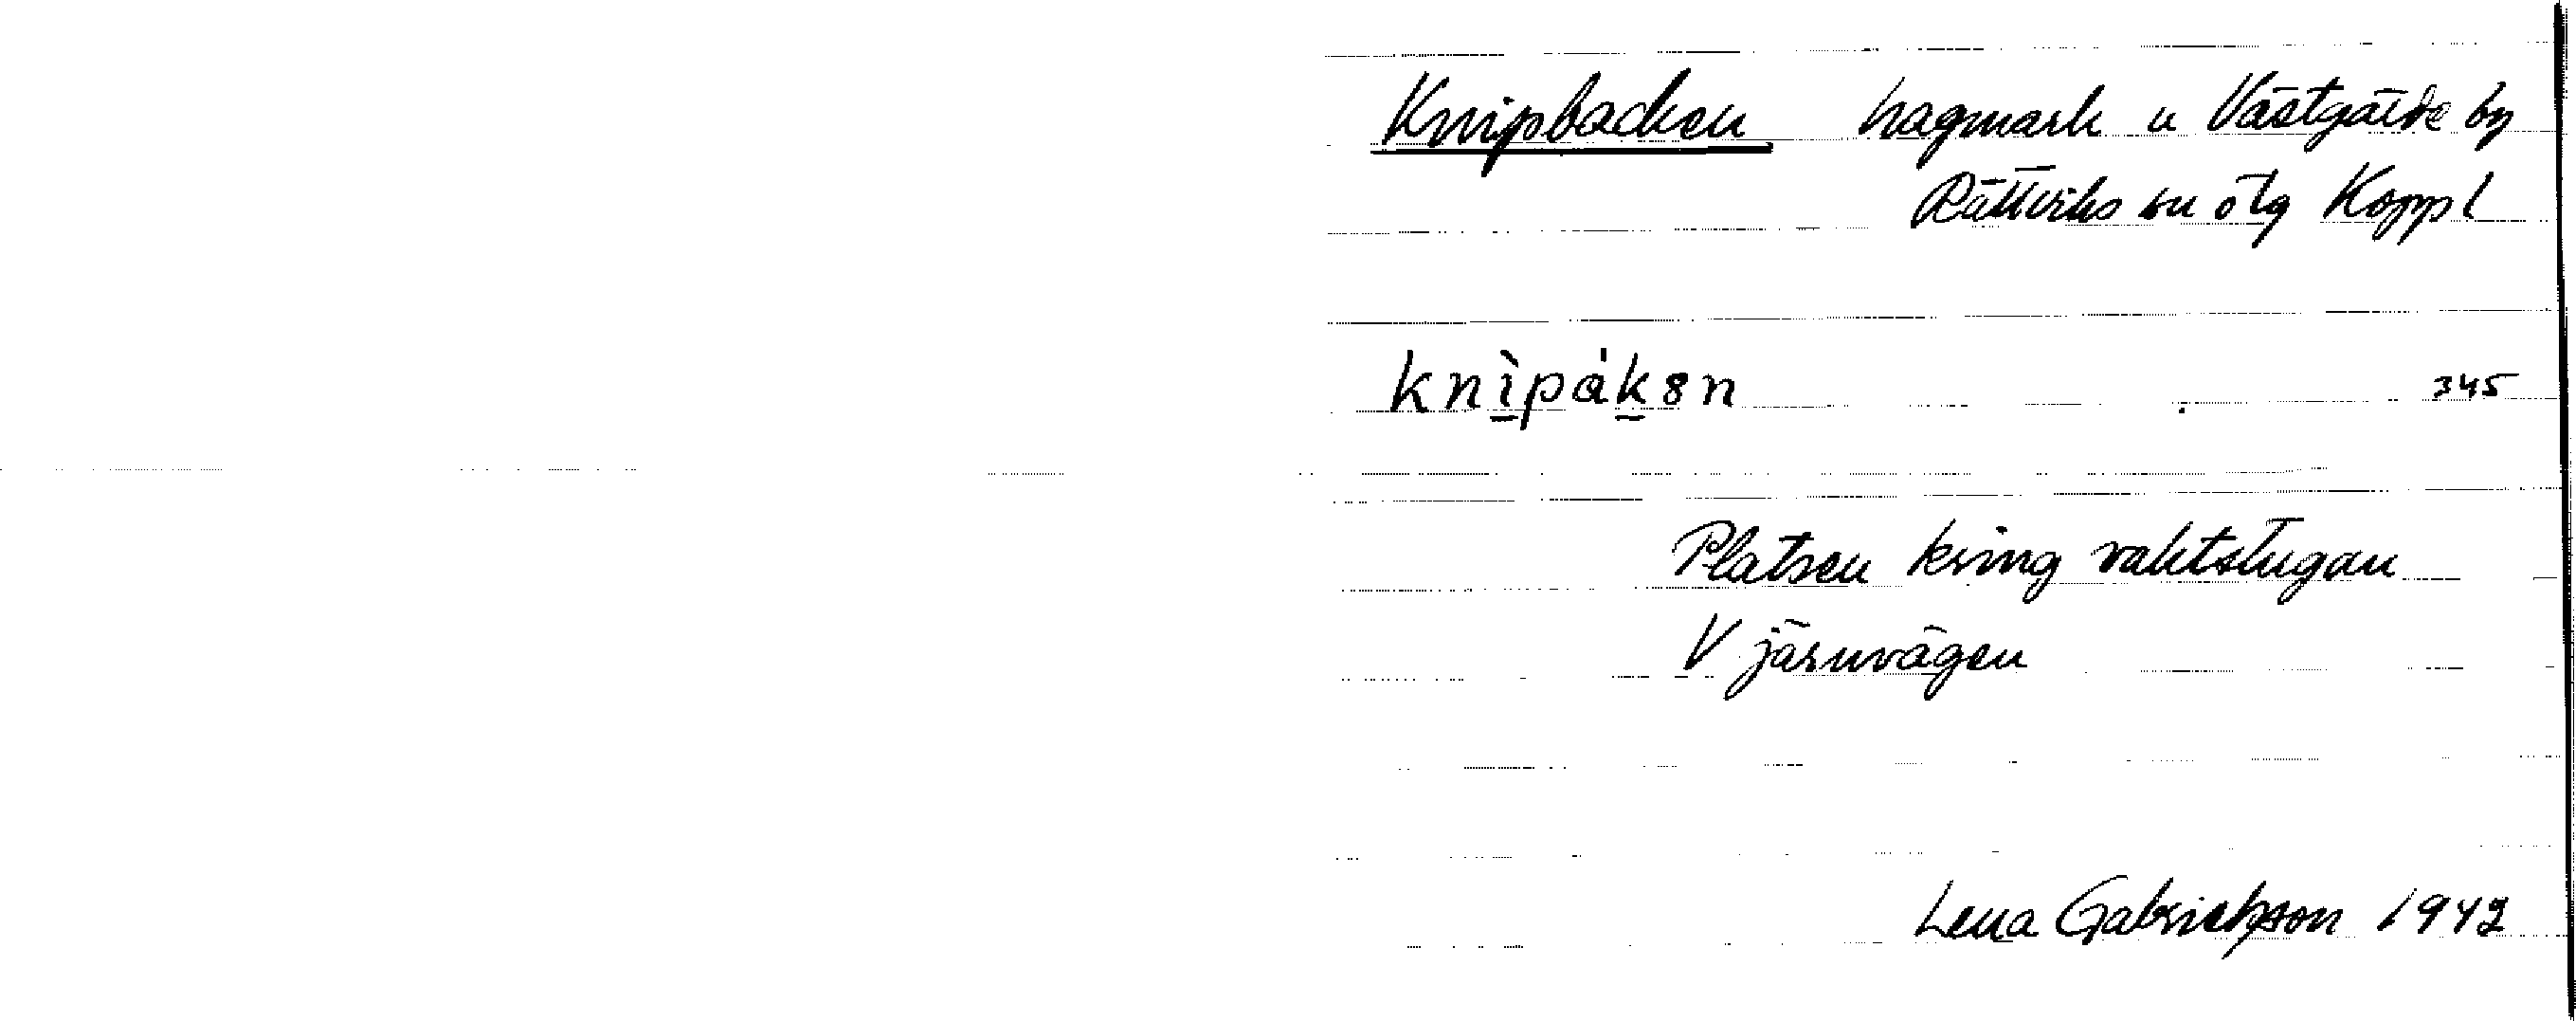 Knipbacken hagmark u Västgärde by
Rättviks sn ö lg Koppl
knìpák8n 345
Platsen kring vaktstugan
V järnvägen
Lena Gabrielsson 1942